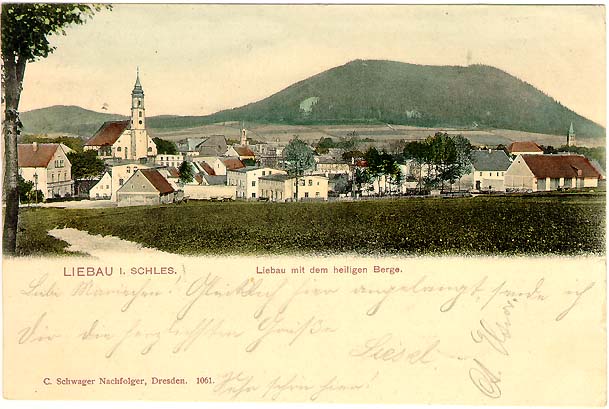 LIEBAU I. SCHLES.
Liebau mit dem heiligen Berge.
Liebe Mariechen! Glücklich hier angelangt, sende ich
Dir die herzlichsten Grüße
Liesel
C. Schwager Nachfolger, Dresden. 1061.
Sehr schön hier!